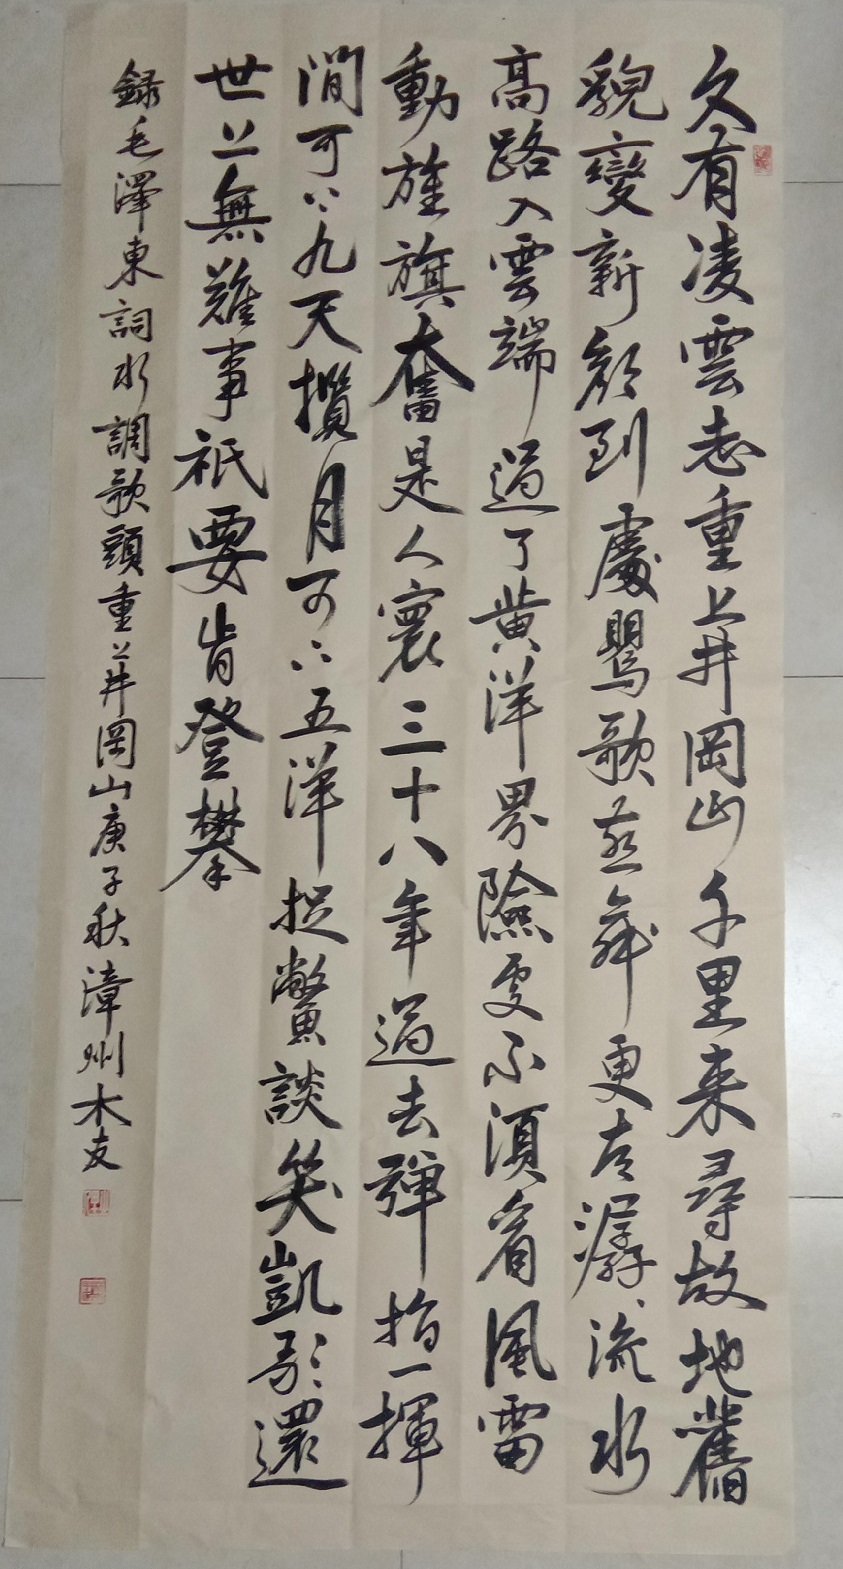 久有凌雲志重上井岡山千里来尋故地舊
貌變新顔到處鶯歌燕舞更有潺潺流水
高路入雲端過了黄洋界險處不須看風雷
動旌旗奮是人寰三十八年過去彈指一揮
間可上九天攬月可下五洋捉鱉談笑凱歌還
世上無難事祇要肯登攀
録毛澤東詞水調歌頭重上井岡山庚子秋漳州木友